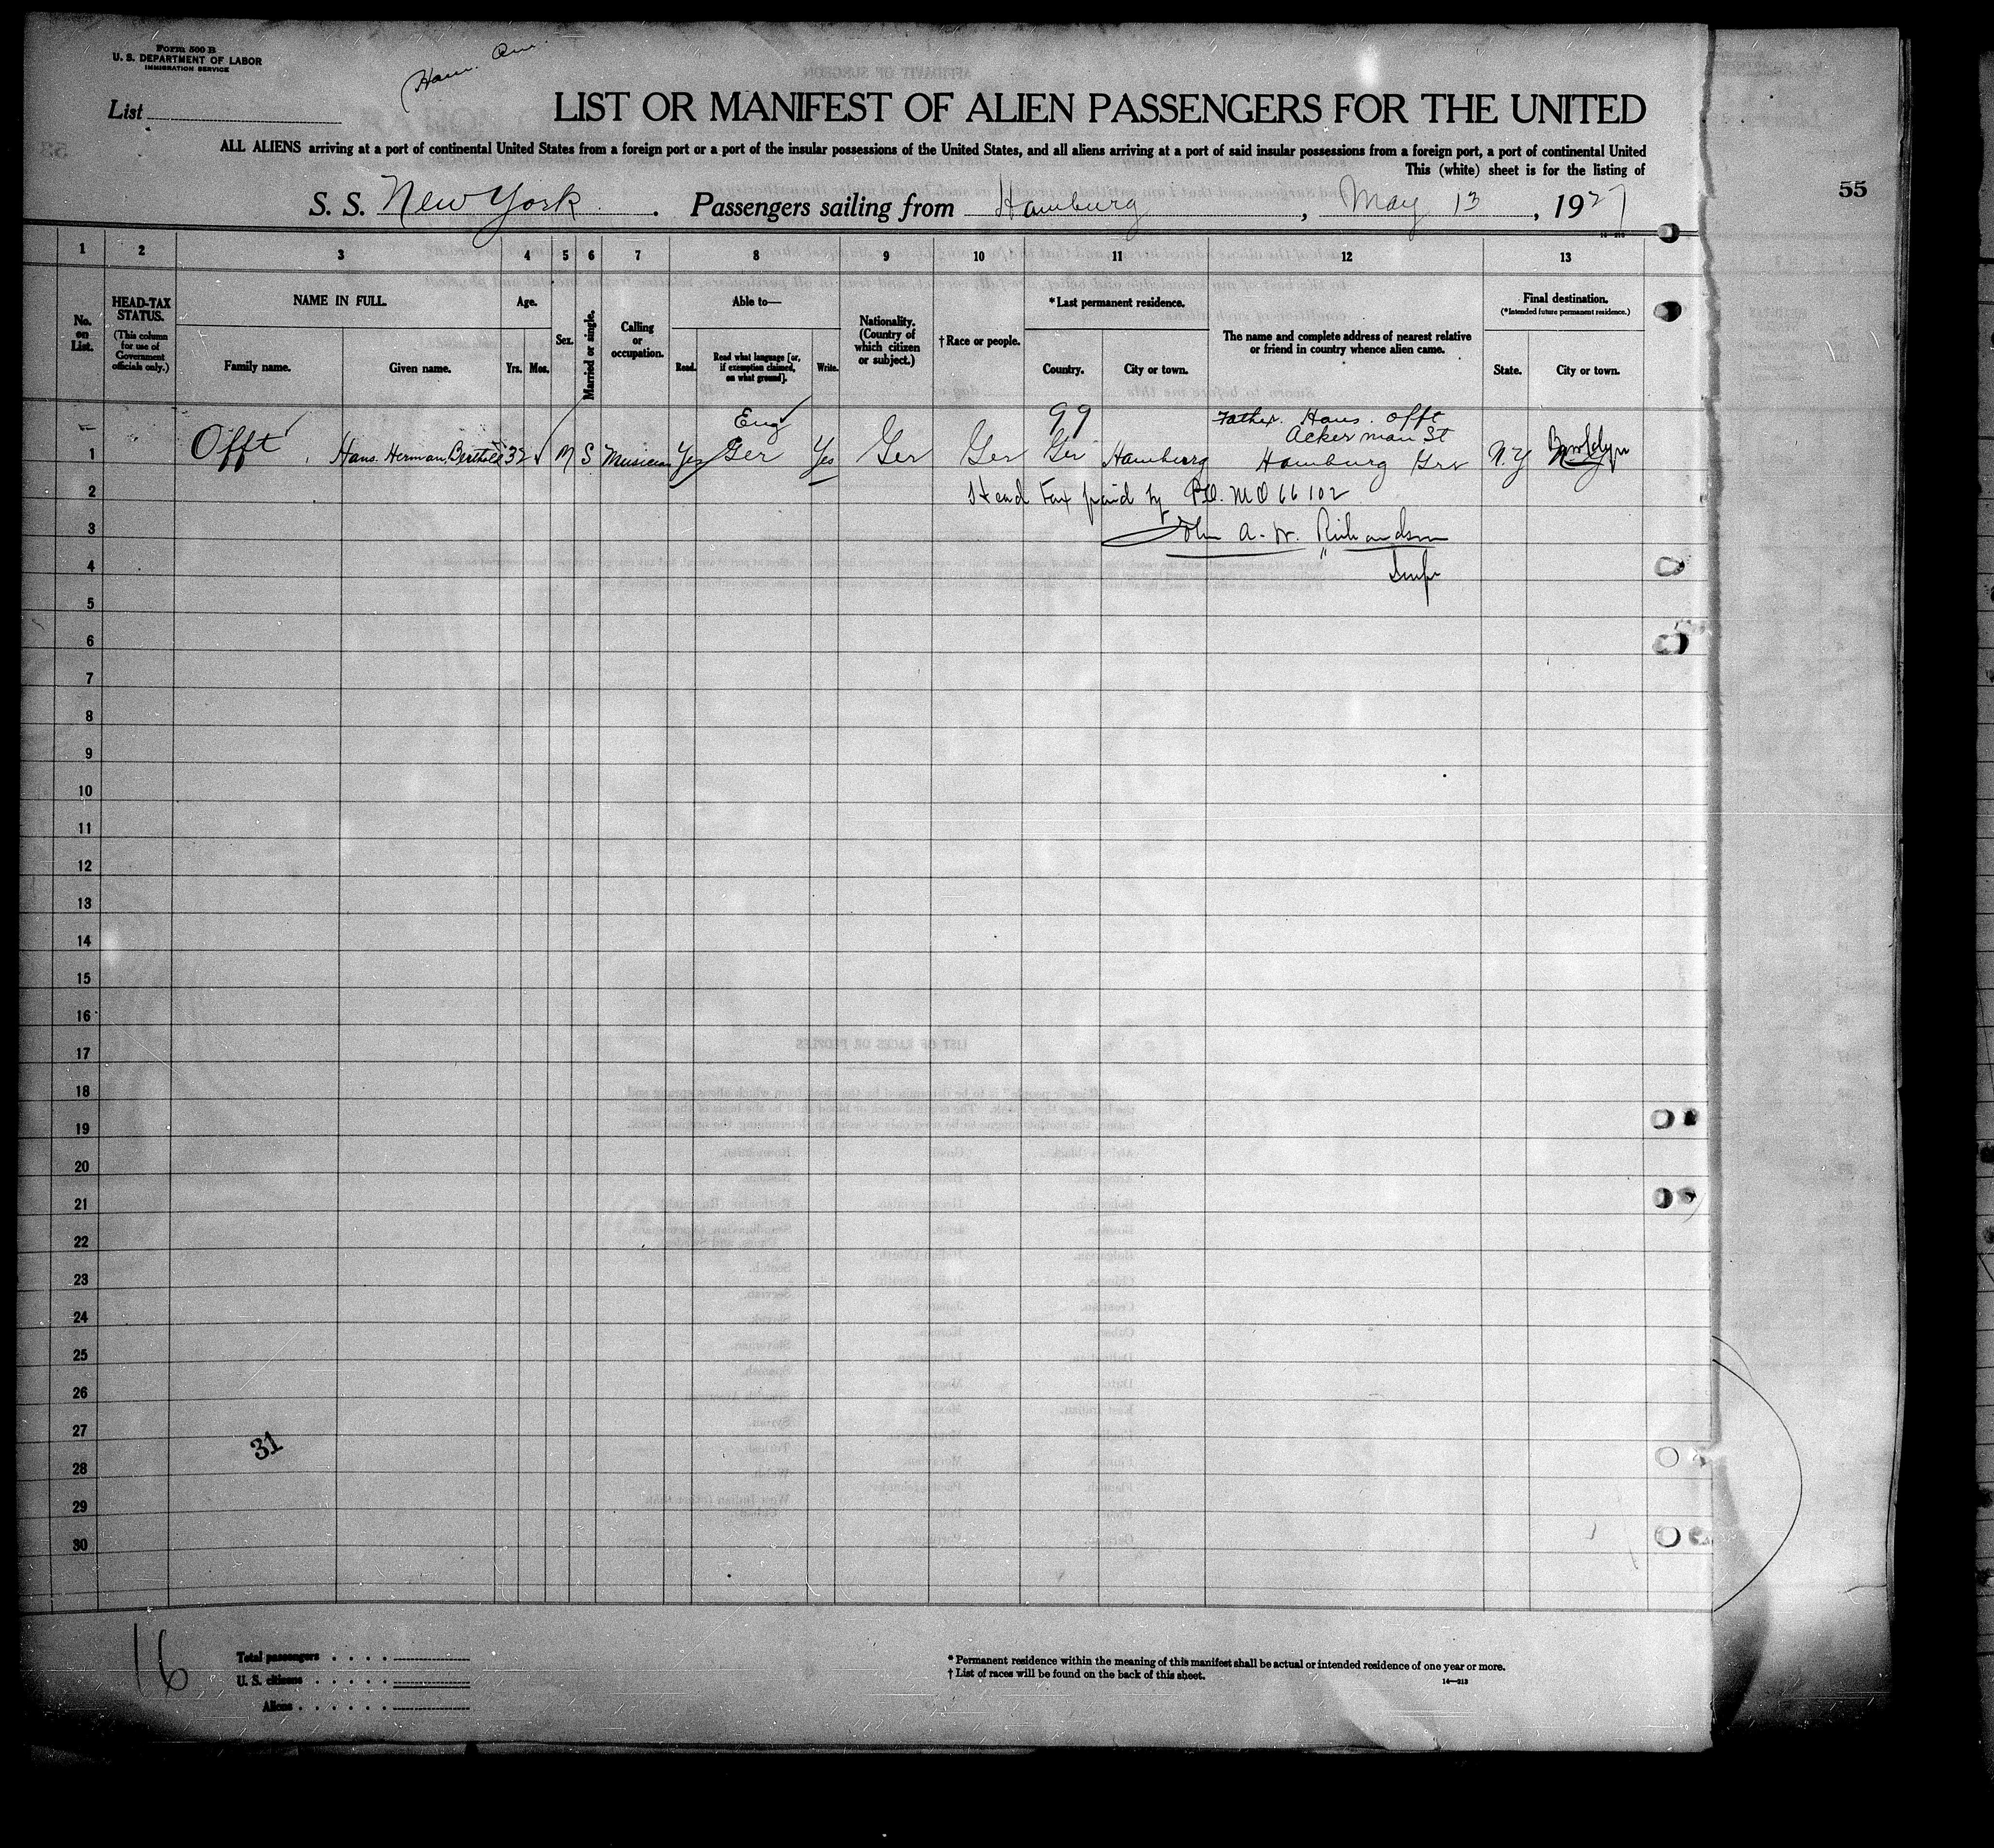 Form 500 B
U. S. DEPARTMENT OF LABOR
IMMIGRATION SERVICE
Ham. Am.
List
LIST OR MANIFEST OF ALIEN PASSENGERS FOR THE UNITED
ALL ALIENS arriving at a port of continental United States from a foreign port or a port of the insular possessions of the United States, and all aliens arriving at a port of said insular possessions from a foreign port, a port of continental United
This (white) sheet is for the listing of
S. S. New York. Passengers sailing from Hamburg, May 13, 1927
55
1 2 3 4 5 6 7 8 9 10 11 12 13
No. on List.
HEAD-TAX STATUS.
(This column for use of Government officials only.)
NAME IN FULL.
Family name. Given name.
Age.
Yrs. Mos.
Sex.
Married or single.
Calling or occupation.
Able to—
Read. Read what language [or, if exemption claimed, on what ground]. Write.
Nationality. (Country of which citizen or subject.)
†Race or people.
*Last permanent residence.
Country. City or town.
The name and complete address of nearest relative or friend in country whence alien came.
Final destination.
(*Intended future permanent residence.)
State. City or town.
Eng 99 Father. Hans. Offt
Ackerman St
1 Offt Hans. Herman, Berthold 32 M S Musician Yes Ger Yes Ger Ger Ger Hamburg Hamburg Ger N.Y Brooklyn
2 Head Tax paid by P.O. M O 66102
3 John A. W. Richardson
4 Insp
5
6
7
8
9
10
11
12
13
14
15
16
17
18
19
20
21
22
23
24
25
26
27
31
28
29
30
16
Total passengers
U. S. citizens
Aliens
* Permanent residence within the meaning of this manifest shall be actual or intended residence of one year or more.
† List of races will be found on the back of this sheet.
14—213